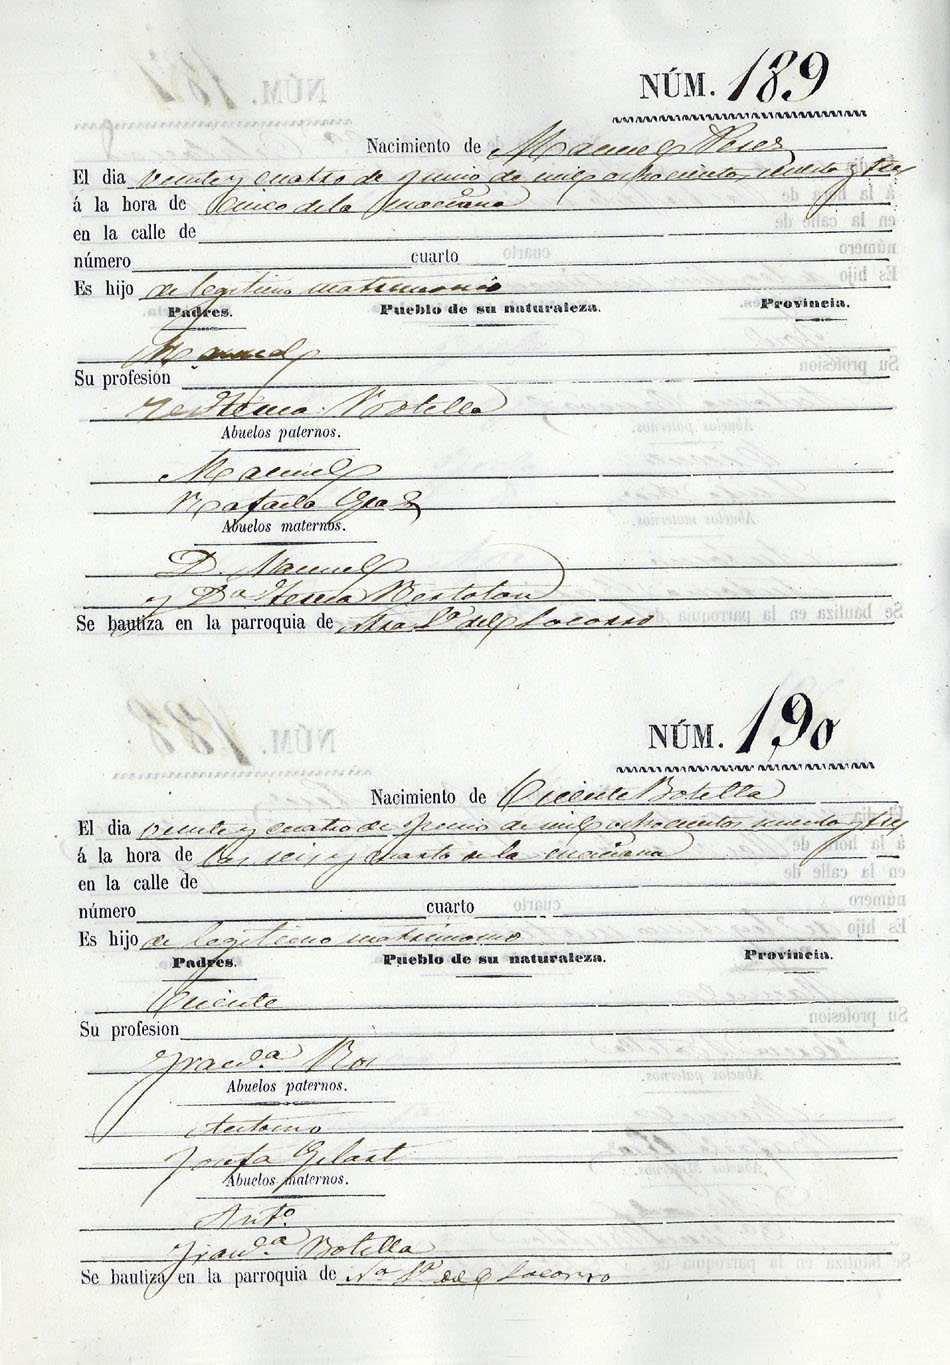 NÚM. 189
Nacimiento de Manuel Perez
El dia veinte y cuatro de Junio de mil ochocientos noventa y tres
á la hora de Cinco de la mañana
en la calle de
número cuarto
Es hijo de legitimo matrimonio
Padres. Pueblo de su naturaleza. Provincia.
Manuel
Su profesion
Botella
Abuelos paternos.
Manuel
Rafaela
Abuelos maternos.
D. Manuel
y Dª Teresa
Se bautiza en la parroquia de Ntra Sª del Socorro
NÚM. 190
Nacimiento de Vicente Botella
El dia veinte y cuatro de Junio de mil ochocientos noventa y tres
á la hora de las seis y cuarto de la mañana
en la calle de
número cuarto
Es hijo de legitimo matrimonio
Padres. Pueblo de su naturaleza. Provincia.
Vicente
Su profesion
Franca Ros
Abuelos paternos.
Antonio
Josefa
Abuelos maternos.
Antº
Francª Botella
Se bautiza en la parroquia de Nª Sª del Socorro